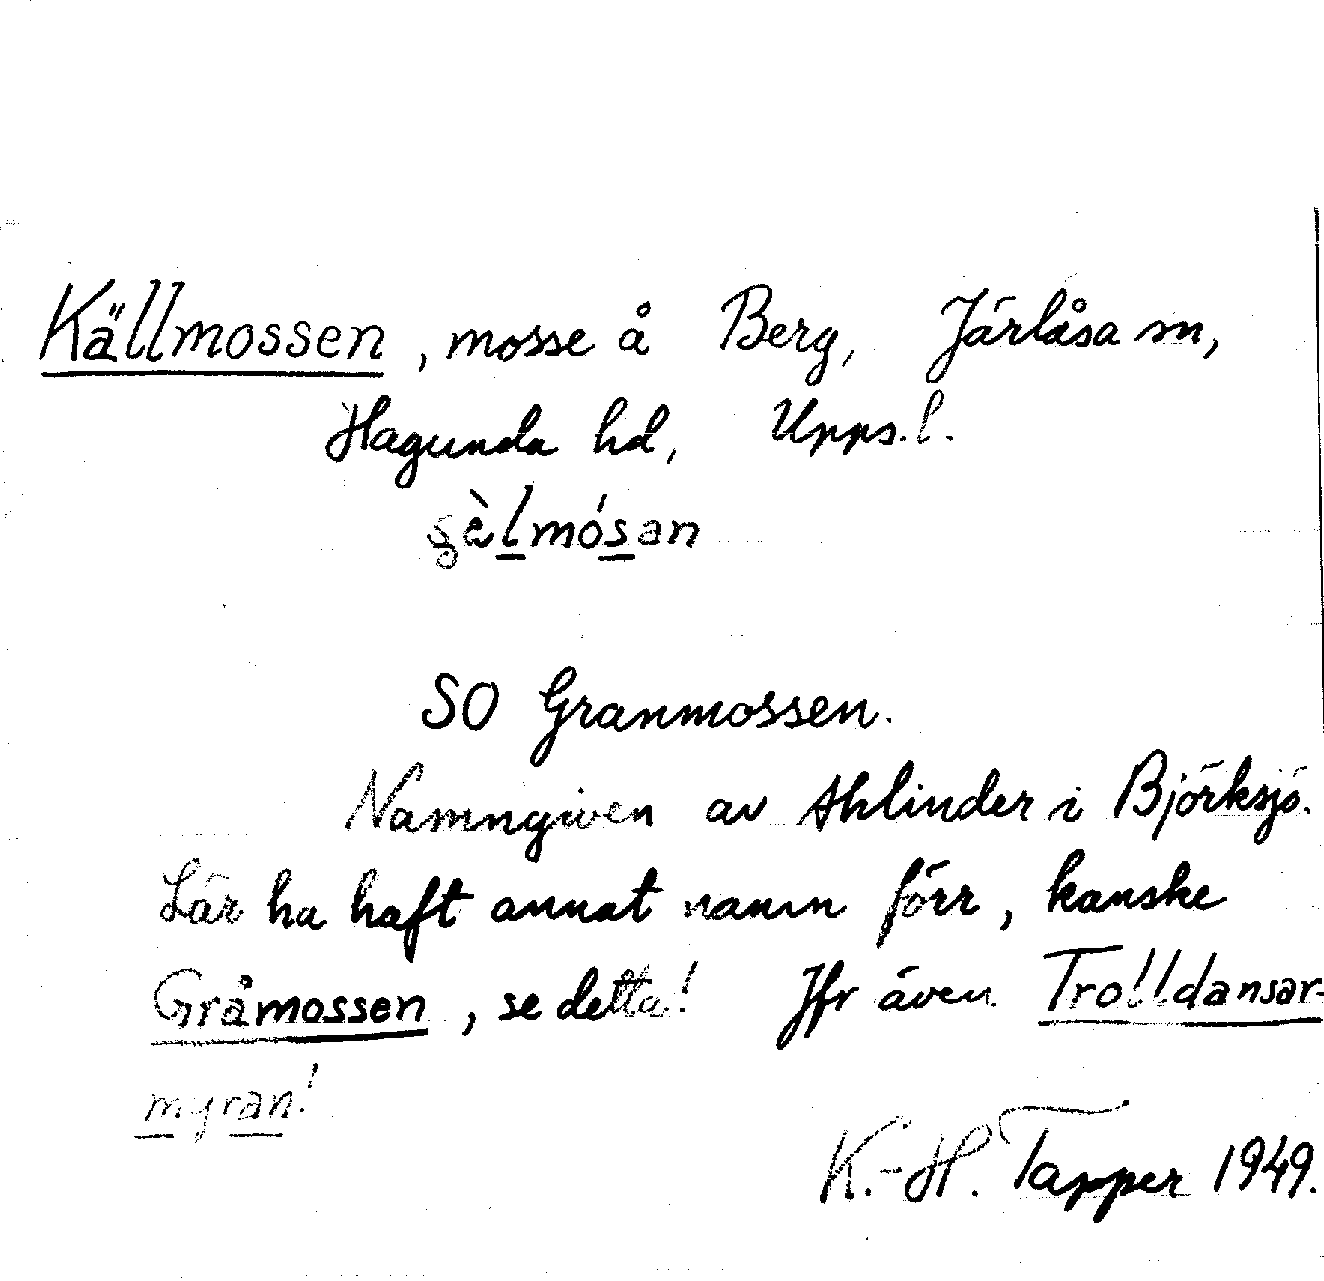 Källmossen, mosse å Berg, Järlåsa sn,
Hagunda hd, Upps.l.
SO Granmossen.
Namngiven av Ahlinder i Björksjö.
Lär ha haft annat namn förr, kanske
Gråmossen, se detta! Jfr även Trolldansar-
myran!
K.-H. Tapper 1949.